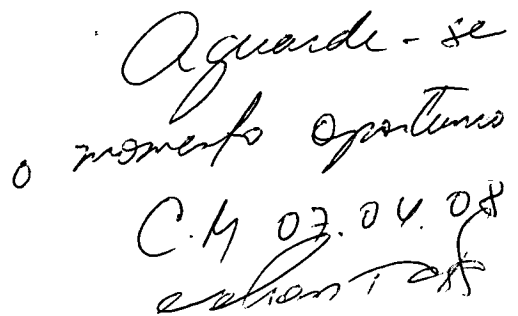 Aguarde-se
o momento oportuno
C.M 07.04.08